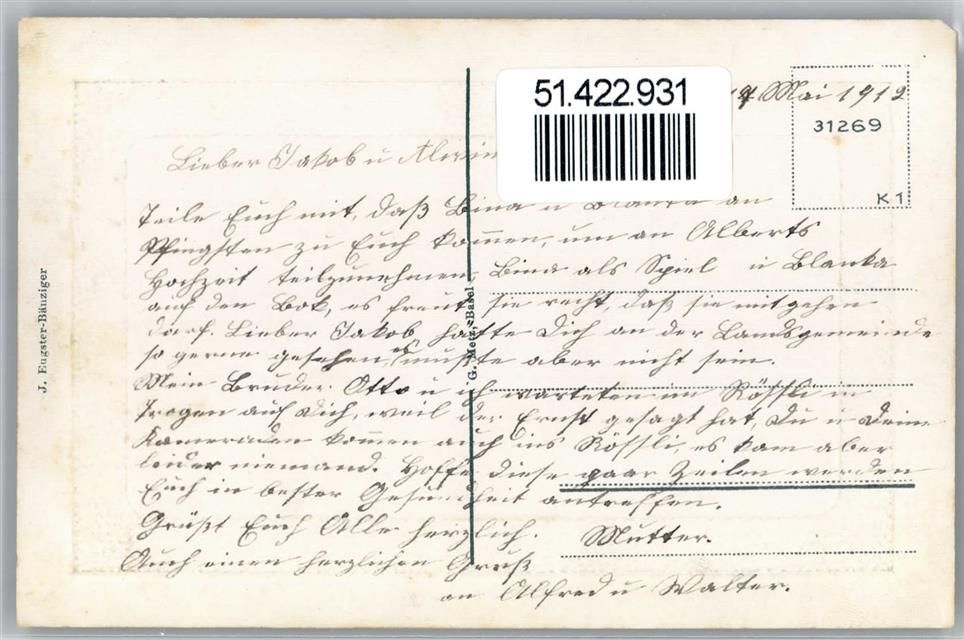 51.422.931
Mai 1912
31269
K 1
Lieber Jakob u Alwin
Teile Euch mit, daß Bina u Blanka an
Pfingsten zu Euch kommen, um an Alberts
Hochzeit teilzunehmen, Bina als Spiel u Blanka
auf den Bok, es freut sie recht, daß sie mitgehen
darf. Lieber Jakob hätte Dich an der Landsgemeinde
so gerne gesehen, es mußte aber nicht sein.
Mein Bruder Otto u ich warteten im Rößli in
Trogen auf Dich, weil der Ernst gesagt hat, Du u Deine
Kameraden kommen auch ins Rößli, es kam aber
leider niemand. Hoffe diese paar Zeilen werden
Euch in bester Gesundheit antreffen.
Grüßt Euch Alle herzlich. Mutter.
Auch einen herzlichen Gruß
an Alfred u Walter.
J. Eugster-Bänziger
G. Metz, Basel